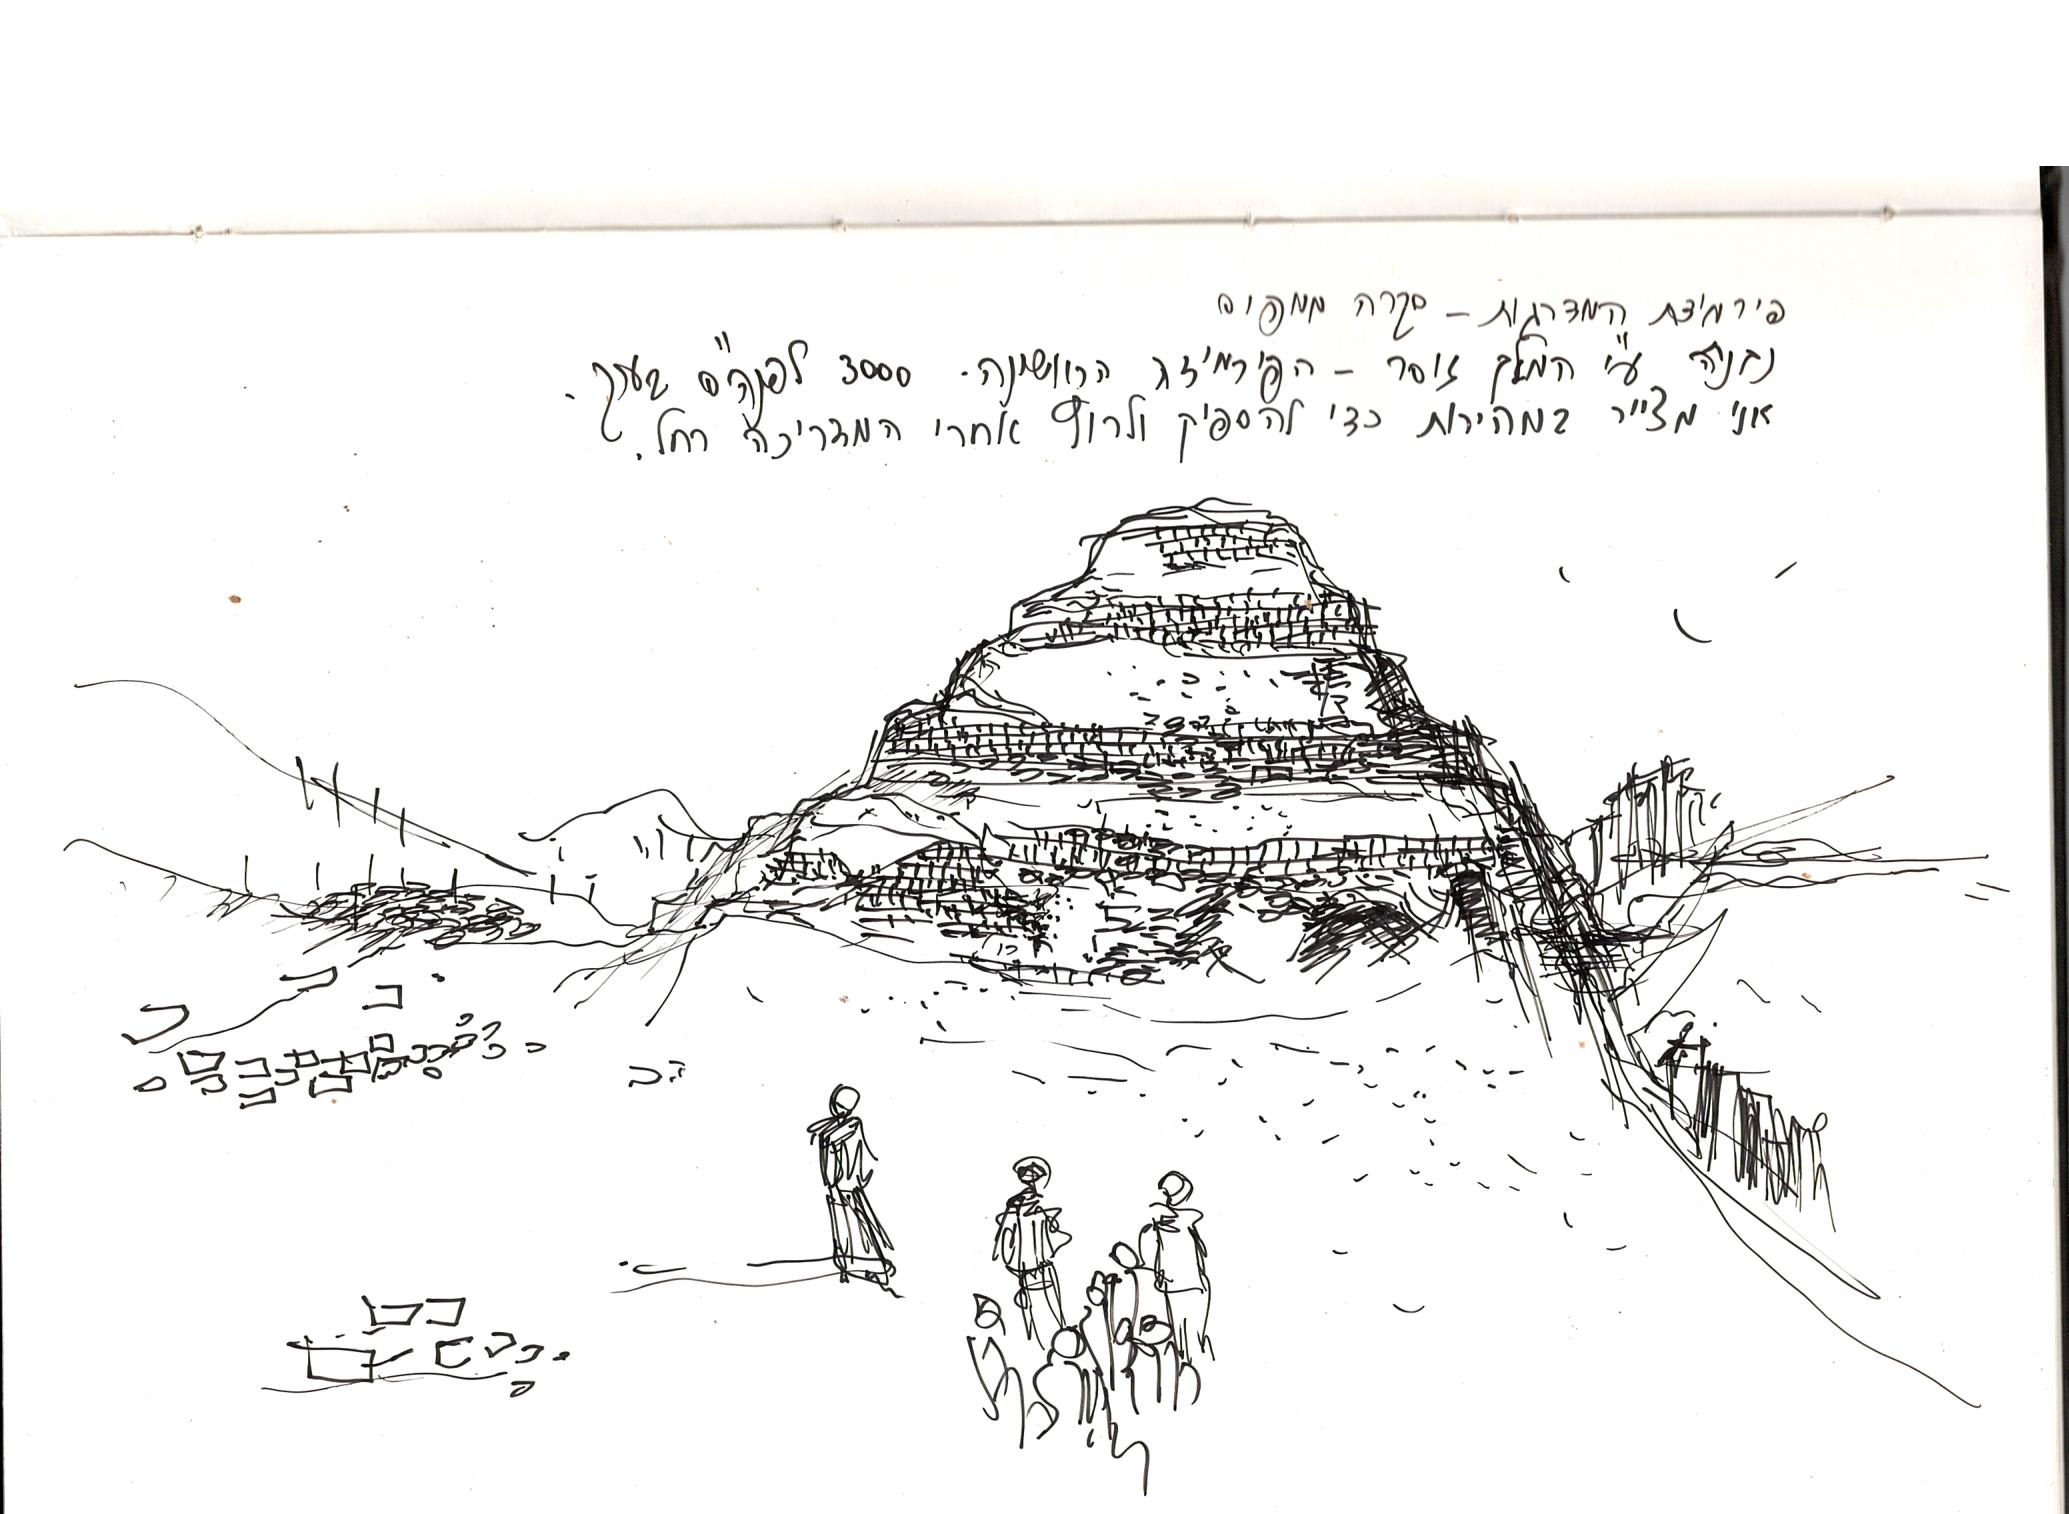 פירמידת המדרגות – סקרה ממפיס
נבנתה ע"י המלך זוסר – הפירמידה הראשונה. 3000 לפנה"ס בערך.
אני מצייר במהירות כדי להספיק ולרוץ אחרי המדריכה רחל.